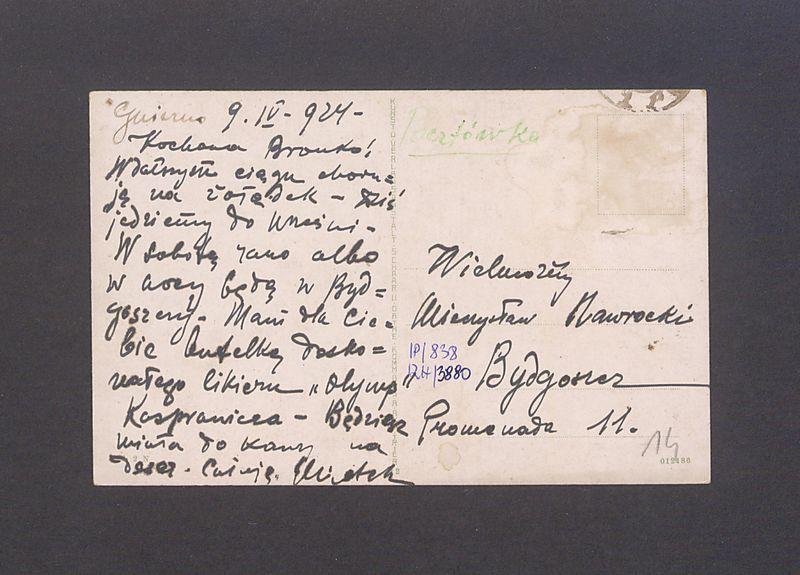 Gniezno 9. IV - 924 -
Kochana Bronko!
W dalszym ciągu choru=
ję na żołądek - dziś
jedziemy do Wrześni -
W sobotę rano albo
w nocy będę w Byd=
goszczy. Mam dla Cie=
bie butelkę dosko=
nałego likieru „Olymp”
Kasprowicza - Będziesz
miała do kawy na
deser. Całuję Mietek
Pocztówka
Wielmożny
Mieczysław Nawrocki
Bydgoszcz
Promenada 11.
IP/838
12H/3880
14
012486